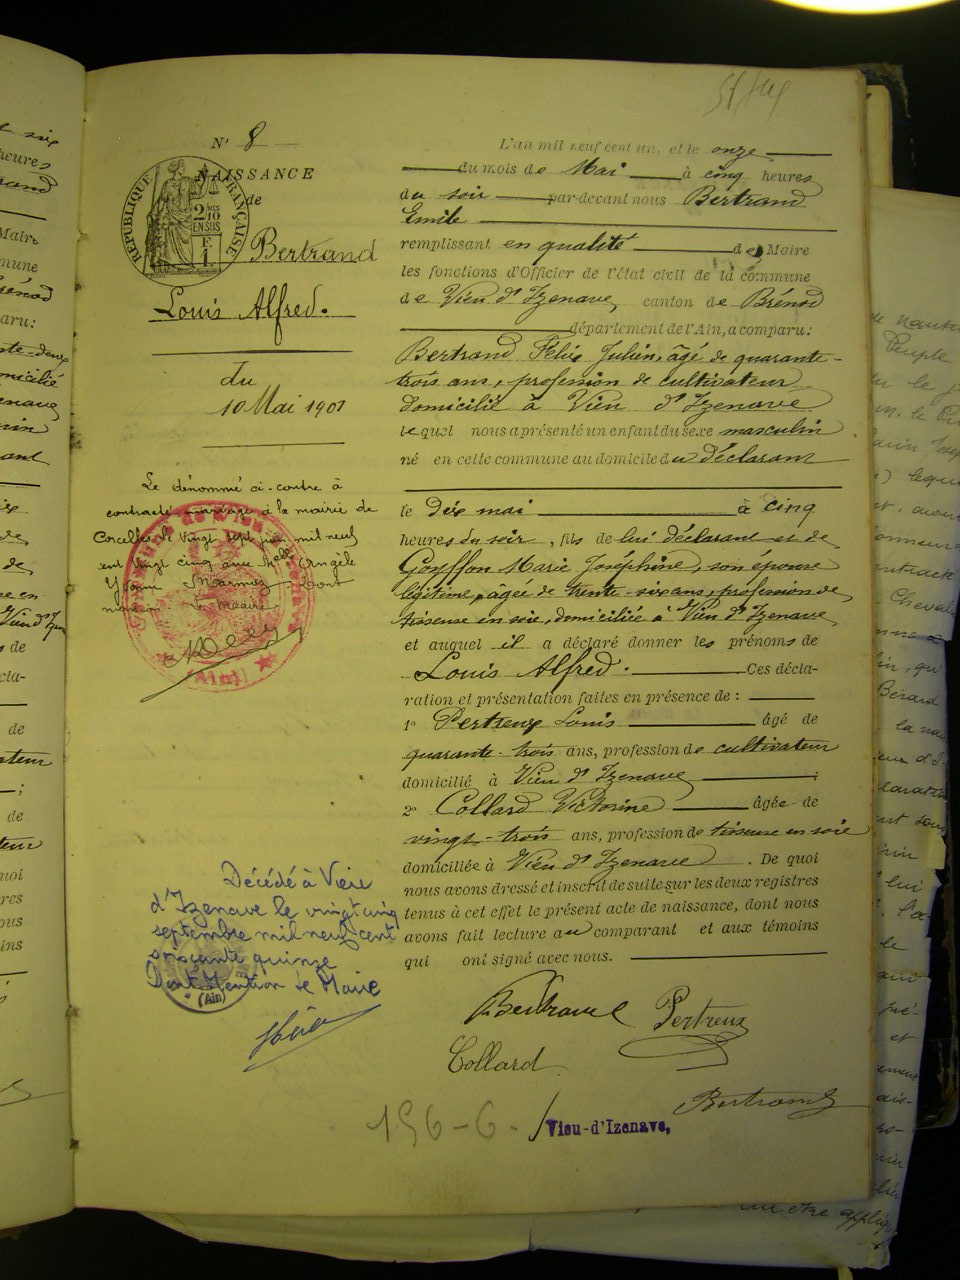 N° 8
NAISSANCE
de
RÉPUBLIQUE FRANÇAISE
2/10 EN SUS
F. 1.
Bertrand
Louis Alfred.
du
10 Mai 1901
Le dénommé ci-contre à
contracté mariage à la mairie de
Corcelles le vingt sept juin mil neuf
cent vingt cinq avec Melle Angèle
Yvonne Dont
mention Le Maire
(Ain)
Décédé à Vieu
d'Izenave le vingt cinq
septembre mil neuf cent
soixante quinze
Dont Mention le Maire
(Ain)
L'an mil neuf cent un, et le onze
du mois de Mai à cinq heures
du soir par-devant nous Bertrand
Emile
remplissant en qualité de Maire
les fonctions d'Officier de l'état civil de la commune
de Vieu d'Izenave, canton de Brénod
département de l'Ain, a comparu:
Bertrand Felix Julien, âgé de quarante-
trois ans, profession de cultivateur
domicilié à Vieu d'Izenave
lequel nous a présenté un enfant du sexe masculin
né en cette commune au domicile du déclarant
le dix mai à cinq
heures du soir, fils de lui déclarant et de
Goyffon Marie Joséphine, son épouse
légitime, âgée de trente-six ans, profession de
tisseuse en soie, domiciliée à Vieu d'Izenave
et auquel il a déclaré donner les prénoms de
Louis Alfred. Ces décla-
ration et présentation faites en présence de :
1° Pertreux Louis âgé de
quarante-trois ans, profession de cultivateur
domicilié à Vieu d'Izenave ;
2° Collard Victorine âgée de
vingt-trois ans, profession de tisseuse en soie
domiciliée à Vieu d'Izenave . De quoi
nous avons dressé et inscrit de suite sur les deux registres
tenus à cet effet le présent acte de naissance, dont nous
avons fait lecture au comparant et aux témoins
qui ont signé avec nous.
Bertrand Pertreux
Collard
Bertrand
156-6- / Vieu-d'Izenave,